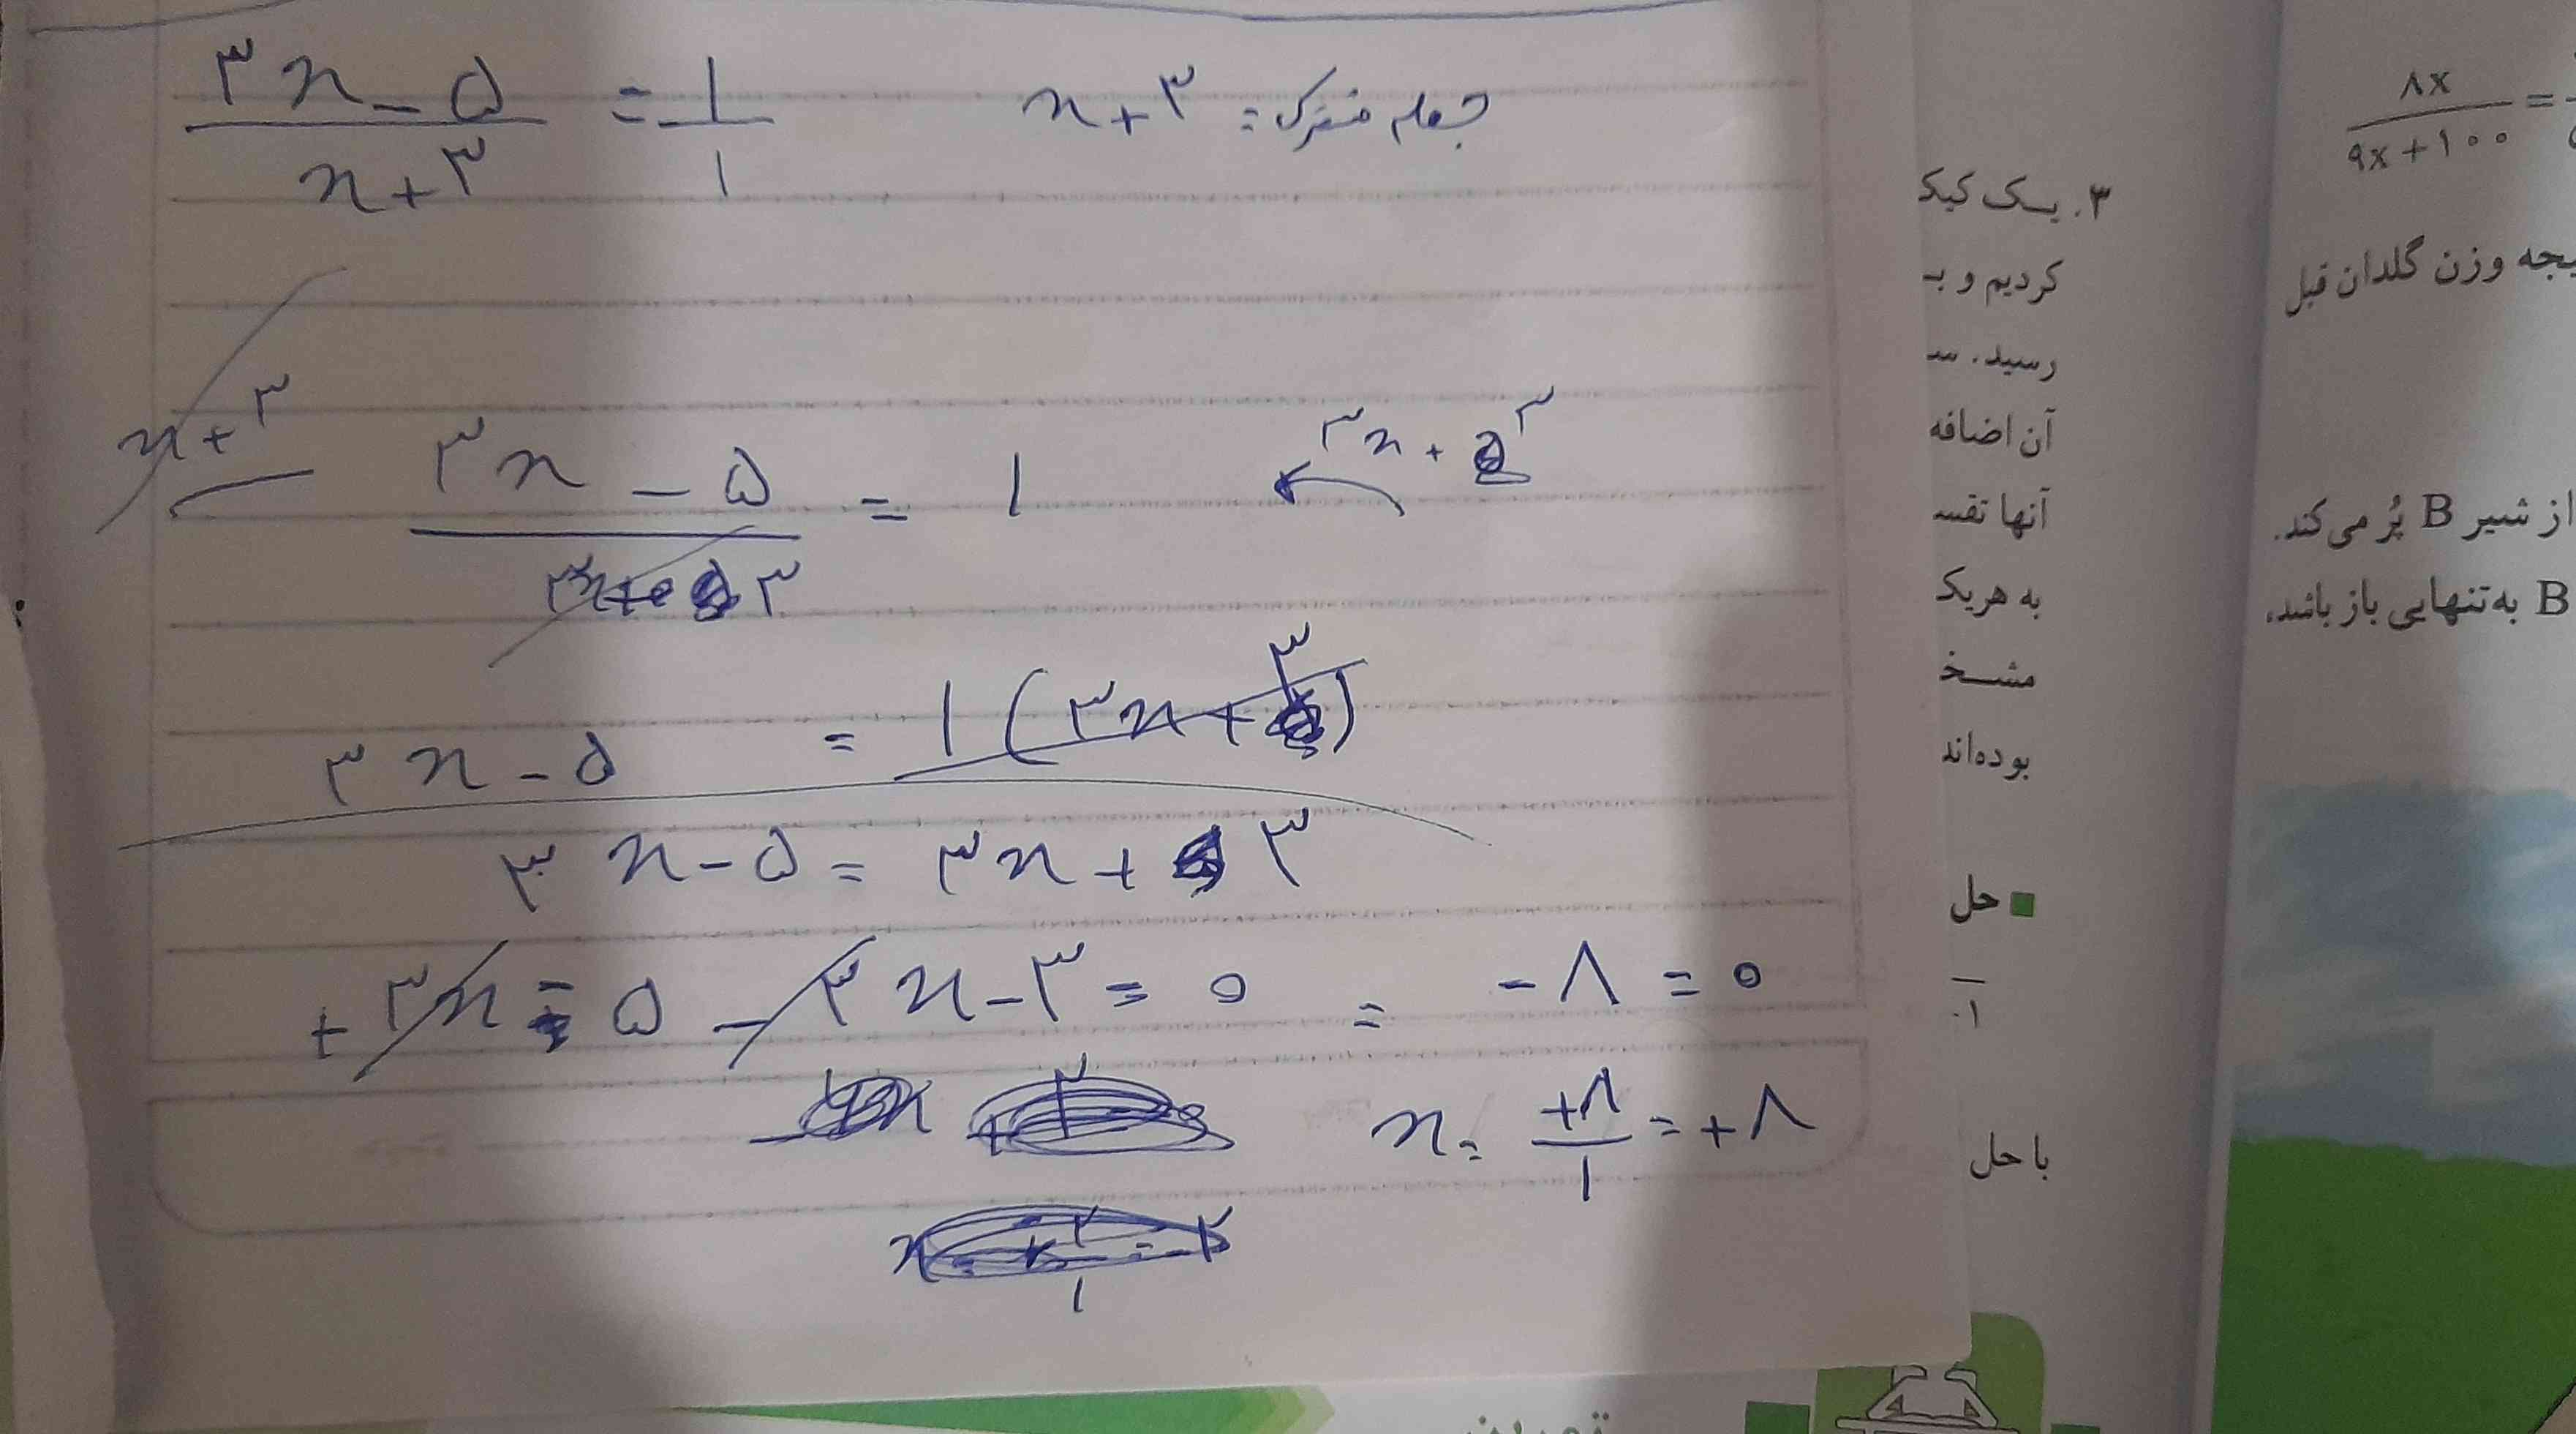 ۳x - ۵ / x + ۳ = ۱ / ۱
جمله مشترک = x + ۳
x + ۳
۳x - ۵ / ۳x + ۳ = ۱
۳x + ۳
۳x - ۵ = ۱(۳x + ۳)
۳x - ۵ = ۳x + ۳
+ ۳x - ۵ - ۳x - ۳ = ۰ = -۸ = ۰
x = +۸ / ۱ = +۸
۳. یک کیک
کردیم و بـ
رسید. سـ
آن اضافه
آنها تقسـ
به هریک
مشـخـ
بوده‌اند
حل
۱.
با حل
۸x / ۹x + ۱۰۰ =
یجه وزن گلدان قبل
از شیر B پُر می‌کند.
B به‌تنهایی باز باشد،